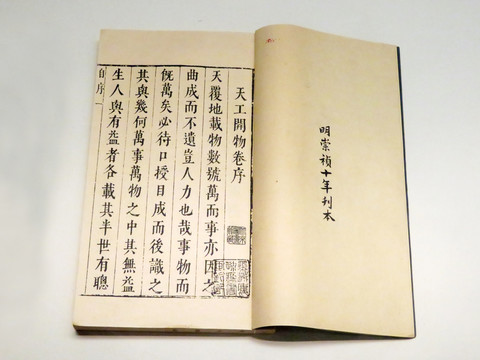 明崇祯十年刊本
天工開物卷序
天覆地載物數號萬而事亦因之
曲成而不遺豈人力也哉事物而
既萬矣必待口授目成而後識之
其與幾何萬事萬物之中其無益
生人與有益者各載其半世有聰
自序 一